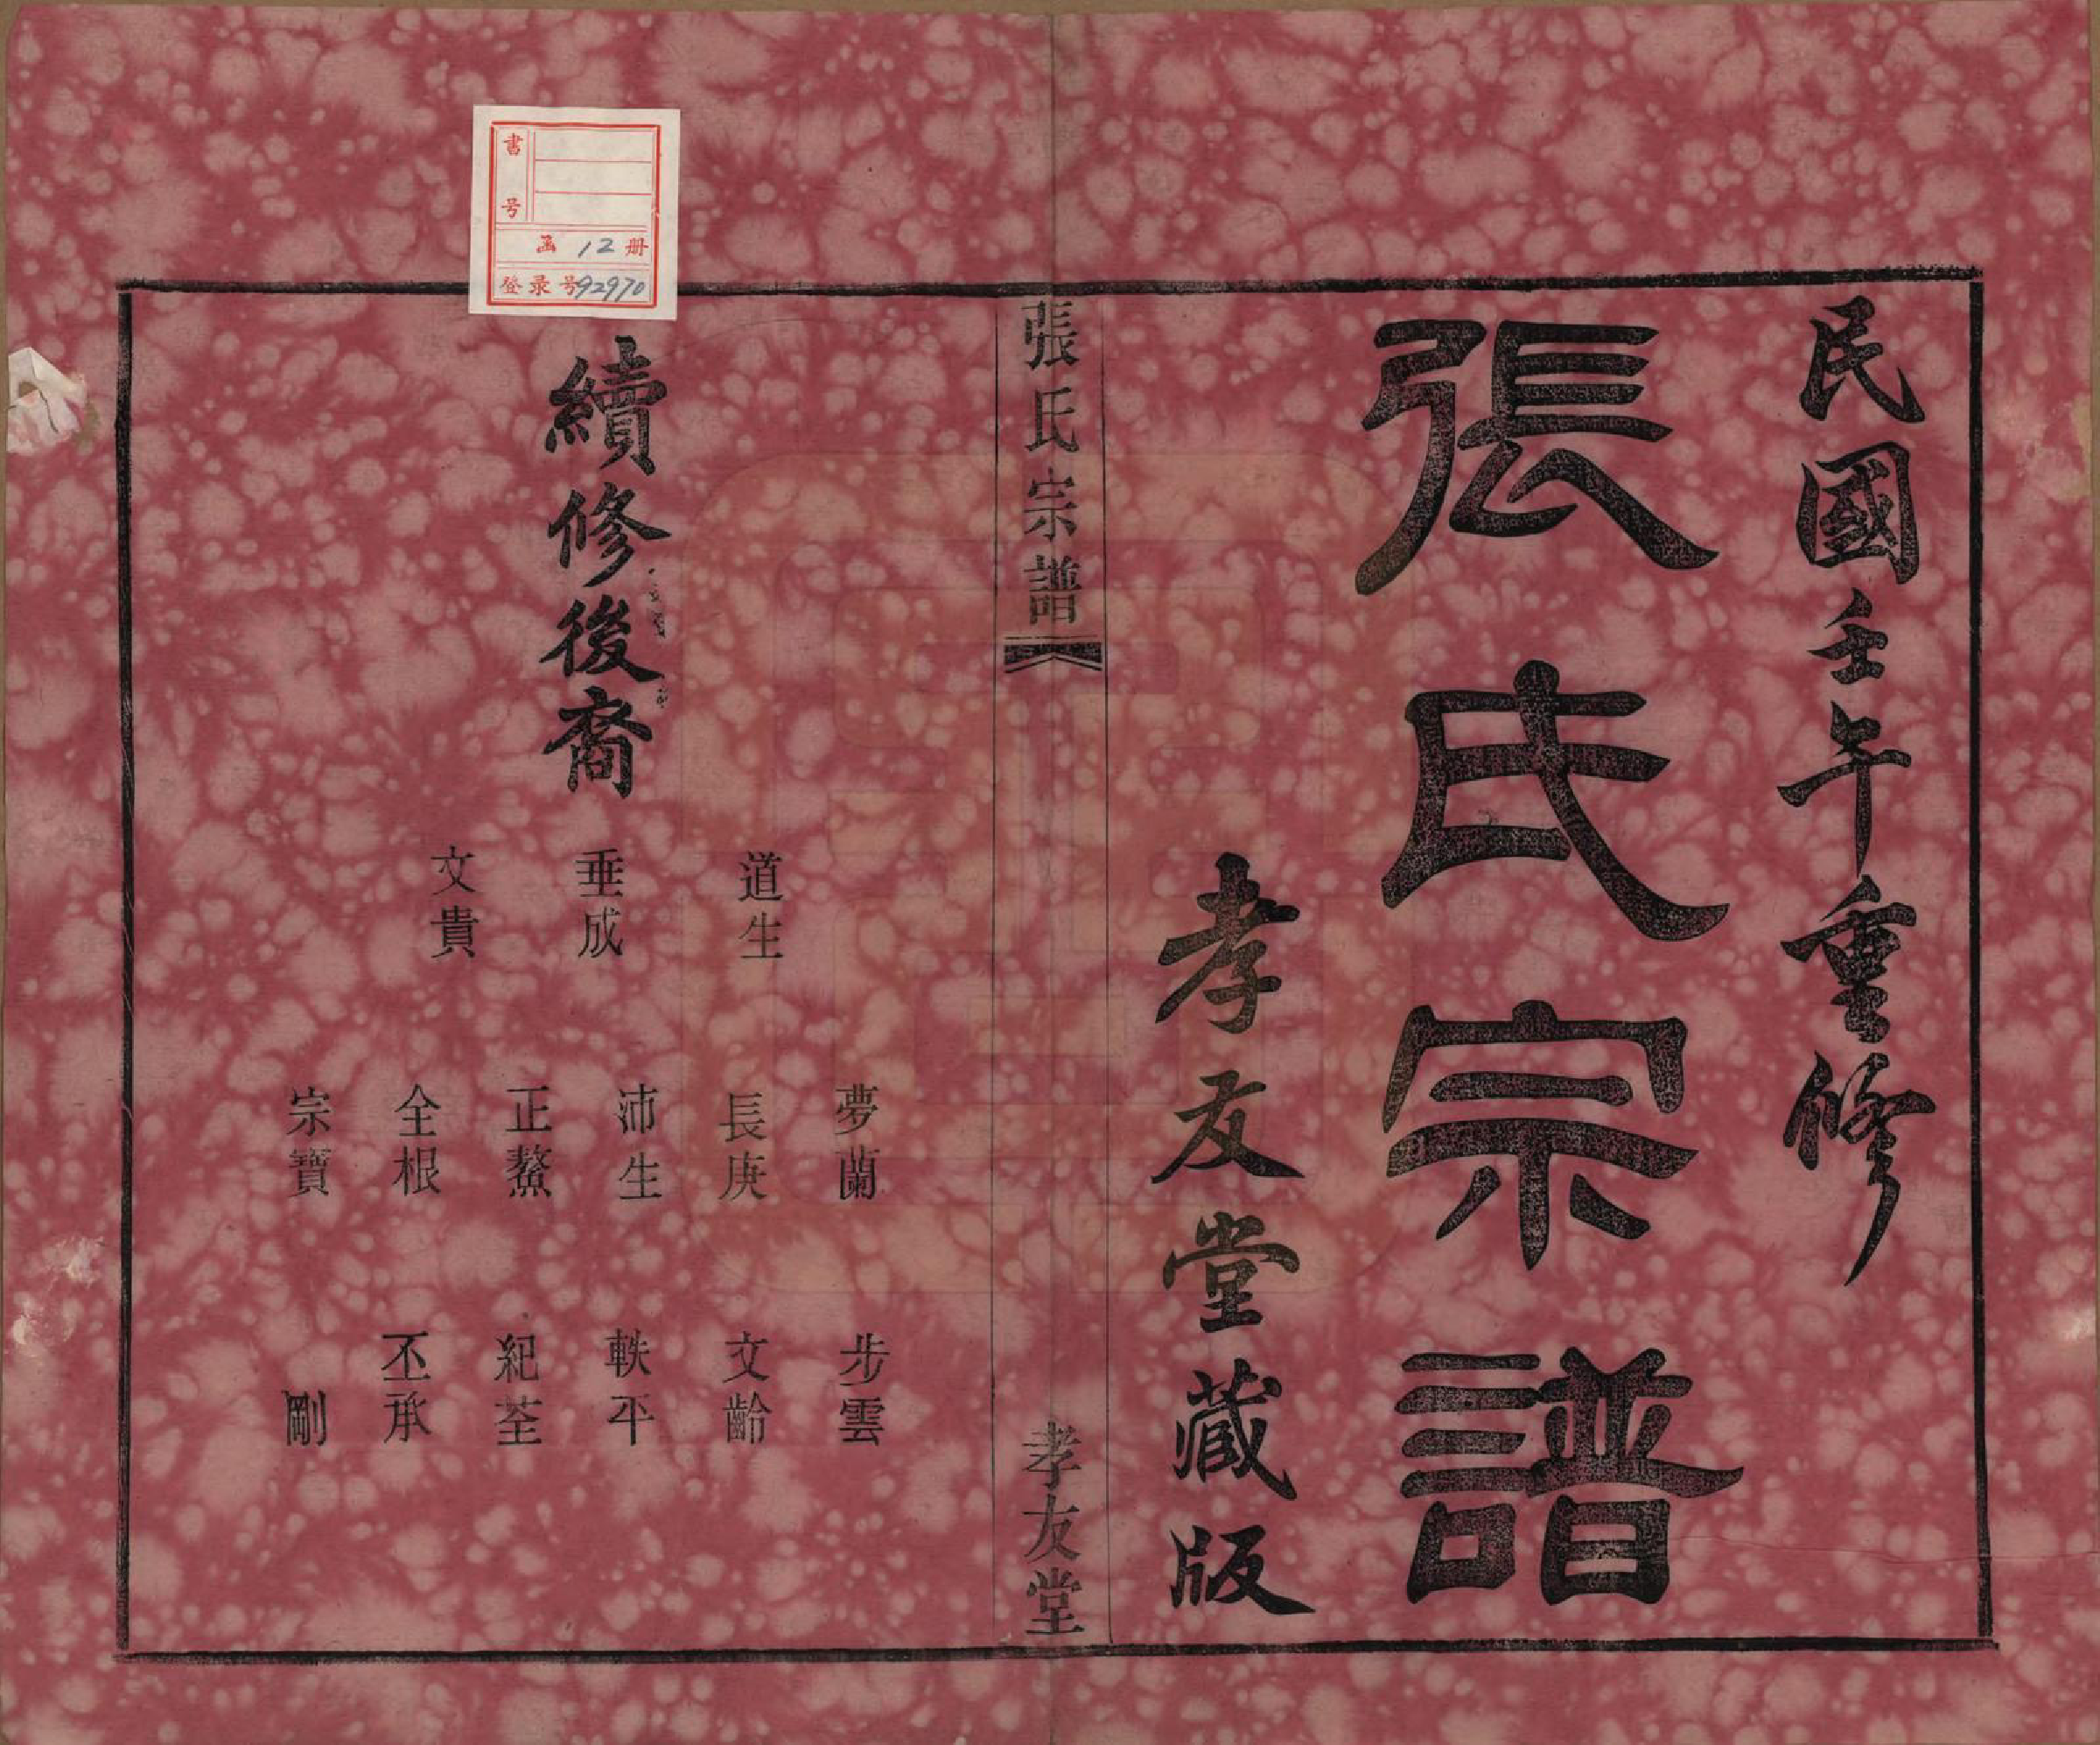 民國壬午重修
張氏宗譜
孝友堂藏版
張氏宗譜
孝友堂
續修後裔
道生
垂成
文貴
夢蘭
長庚
沛生
正鰲
全根
宗寶
步雲
文齡
軼平
紀荃
丕承
剛
書号
函 12 册
登录号 92970